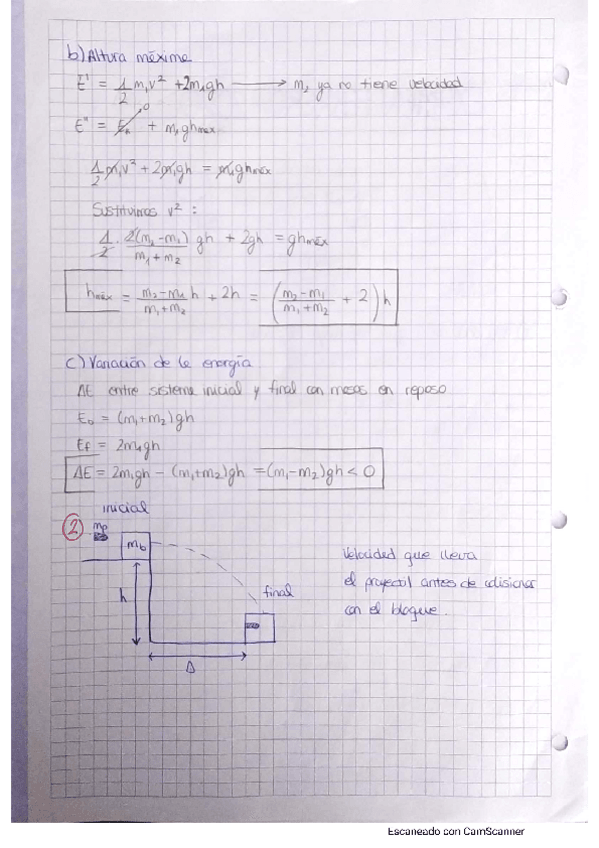 b) Altura máxima
E' = 1/2 m₁v² + 2m₁gh ⟶ m₂ ya no tiene velocidad
E'' = Eₖ 0 + m₁ghmáx
1/2 m₁v² + 2m₁gh = m₁ghmáx
Sustituimos v² :
1/2 · 2(m₂-m₁)/(m₁+m₂) gh + 2gh = ghmáx
hmáx = (m₂-m₁)/(m₁+m₂) h + 2h = ((m₂-m₁)/(m₁+m₂) + 2) h
c) Variación de la energía
ΔE entre sistema inicial y final con masas en reposo
E₀ = (m₁+m₂)gh
Ef = 2m₁gh
ΔE = 2m₁gh - (m₁+m₂)gh = (m₁-m₂)gh < 0
inicial
② mp
mb
h
final
Δ
Velocidad que lleva
el proyectil antes de colisionar
con el bloque.
Escaneado con CamScanner